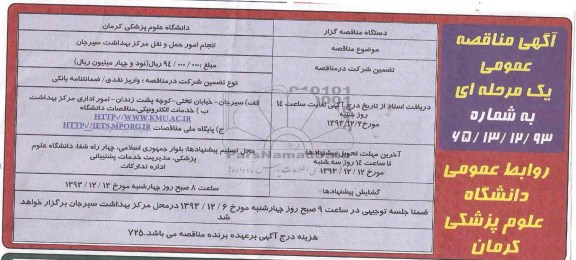 آگهی مناقصه
عمومی
یک مرحله ای
به شماره
۶۵/۱۳/۱۲/۹۳
روابط عمومی
دانشگاه
علوم پزشکی
کرمان
دستگاه مناقصه گزار
دانشگاه علوم پزشکی کرمان
موضوع مناقصه
انجام امور حمل و نقل مرکز بهداشت سیرجان
تضمین شرکت درمناقصه
مبلغ :۹۴/۰۰۰/۰۰۰ ریال(نود و چهار میلیون ریال)
نوع تضمین شرکت درمناقصه : واریز نقدی/ ضمانتنامه بانکی
دریافت اسناد از تاریخ درج آگهی لغایت ساعت ۱۴
روز شنبه
مورخ ۱۳۹۳/۱۲/۲
الف) سیرجان - خیابان تختی-کوچه پشت زندان - امور اداری مرکز بهداشت
ب) خدمات الکترونیکی،مناقصات دانشگاه
HTTP://WWW.KMU.AC.IR
ج) پایگاه ملی مناقصات HTTP://IETS.MPORG.IR
آخرین مهلت تحویل پیشنهادها:
تا ساعت ۱۴ روز سه شنبه
مورخ ۱۲ / ۱۲ / ۱۳۹۳
محل تسلیم پیشنهادها: بلوار جمهوری اسلامی، چهار راه شفا، دانشگاه علوم
پزشکی، مدیریت خدمات پشتیبانی
اداره تدارکات
گشایش پیشنهادها:
ساعت ۸ صبح روز چهارشنبه مورخ ۱۳ / ۱۲ / ۱۳۹۳
ضمنا جلسه توجیهی در ساعت ۹ صبح روز چهارشنبه مورخ ۶ / ۱۲ / ۱۳۹۳ درمحل مرکز بهداشت سیرجان برگزار خواهد
شد
هزینه درج آگهی برعهده برنده مناقصه می باشد.۷۲۵